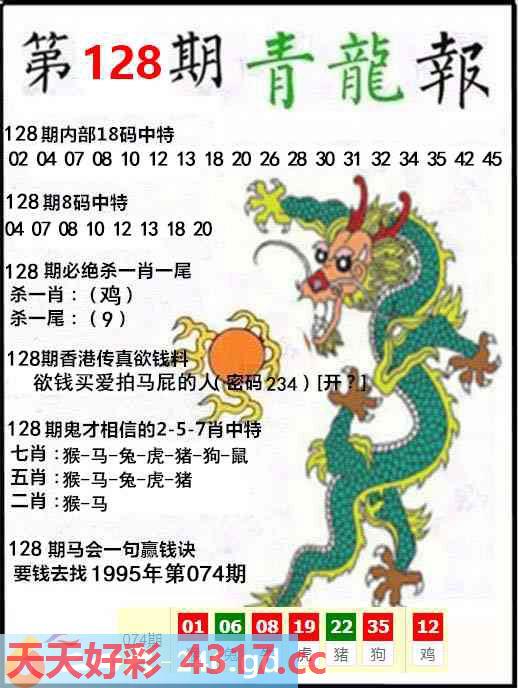 第128期青龍報
128期内部18码中特
02 04 07 08 10 12 13 18 20 26 28 30 31 32 34 35 42 45
128期8码中特
04 07 08 10 12 13 18 20
128期必绝杀一肖一尾
杀一肖：（鸡）
杀一尾：（9）
128期香港传真欲钱料
欲钱买爱拍马屁的人（密码234）[开？]
128期鬼才相信的2-5-7肖中特
七肖：猴-马-兔-虎-猪-狗-鼠
五肖：猴-马-兔-虎-猪
二肖：猴-马
128期马会一句赢钱诀
要钱去找1995年第074期
074期 01 06 08 19 22 35 12
兔 虎 猪 狗 鸡
天天好彩 4317.cc